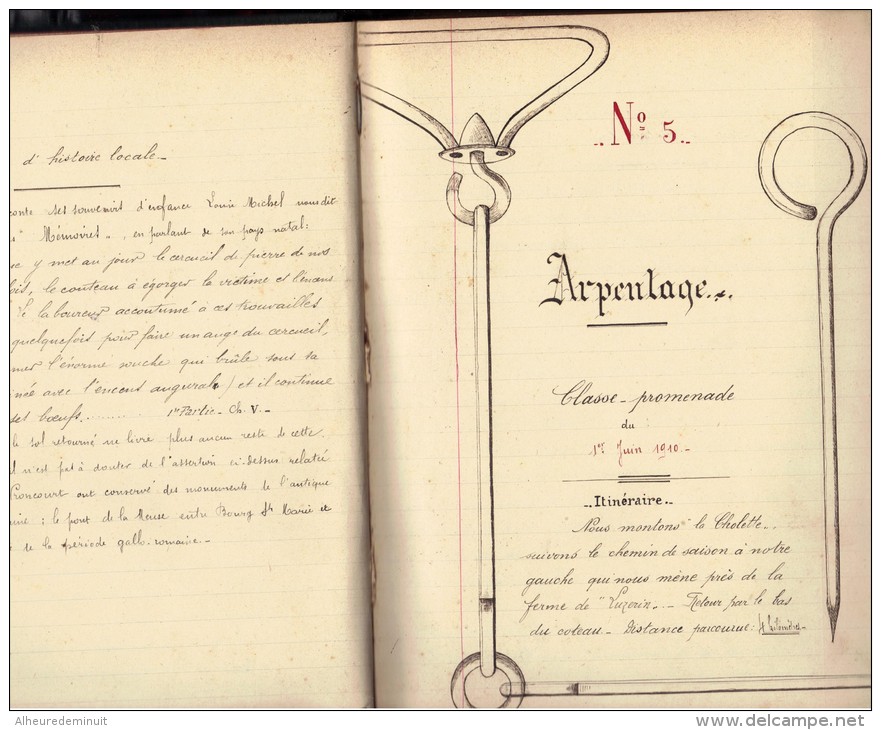 d'histoire locale_
conte ses souvenirs d'enfance Louise Michel nous dit
" Mémoires ", en parlant de son pays natal:
y met au jour le cercueil de pierre de nos
le couteau à égorger la victime et l'encens
Le laboureur accoutumé à ces trouvailles
quelquefois pour faire un auge du cercueil,
l'énorme souche qui brûle sous sa
née avec l'encens augural) et il continue
ses bœufs......... 1re Partie_ Ch. V._
le sol retourné ne livre plus aucun reste de cette
n'est pas à douter de l'assertion ci-dessus relatée
Proncourt ont conservé des monuments de l'antique
: le pont de la Meuse entre Bourg Ste Marie et
de la période gallo-romaine._
No 5
Arpentage.
Classe_promenade
du
1er Juin 1910._
_Itinéraire._
Nous montons "la Cholette",
suivons le chemin de saison à notre
gauche qui nous mène près de la
ferme de "Luzerin"._ Retour par le bas
du coteau_ Distance parcourue: 4
Alheuredeminuit
www.delcampe.net